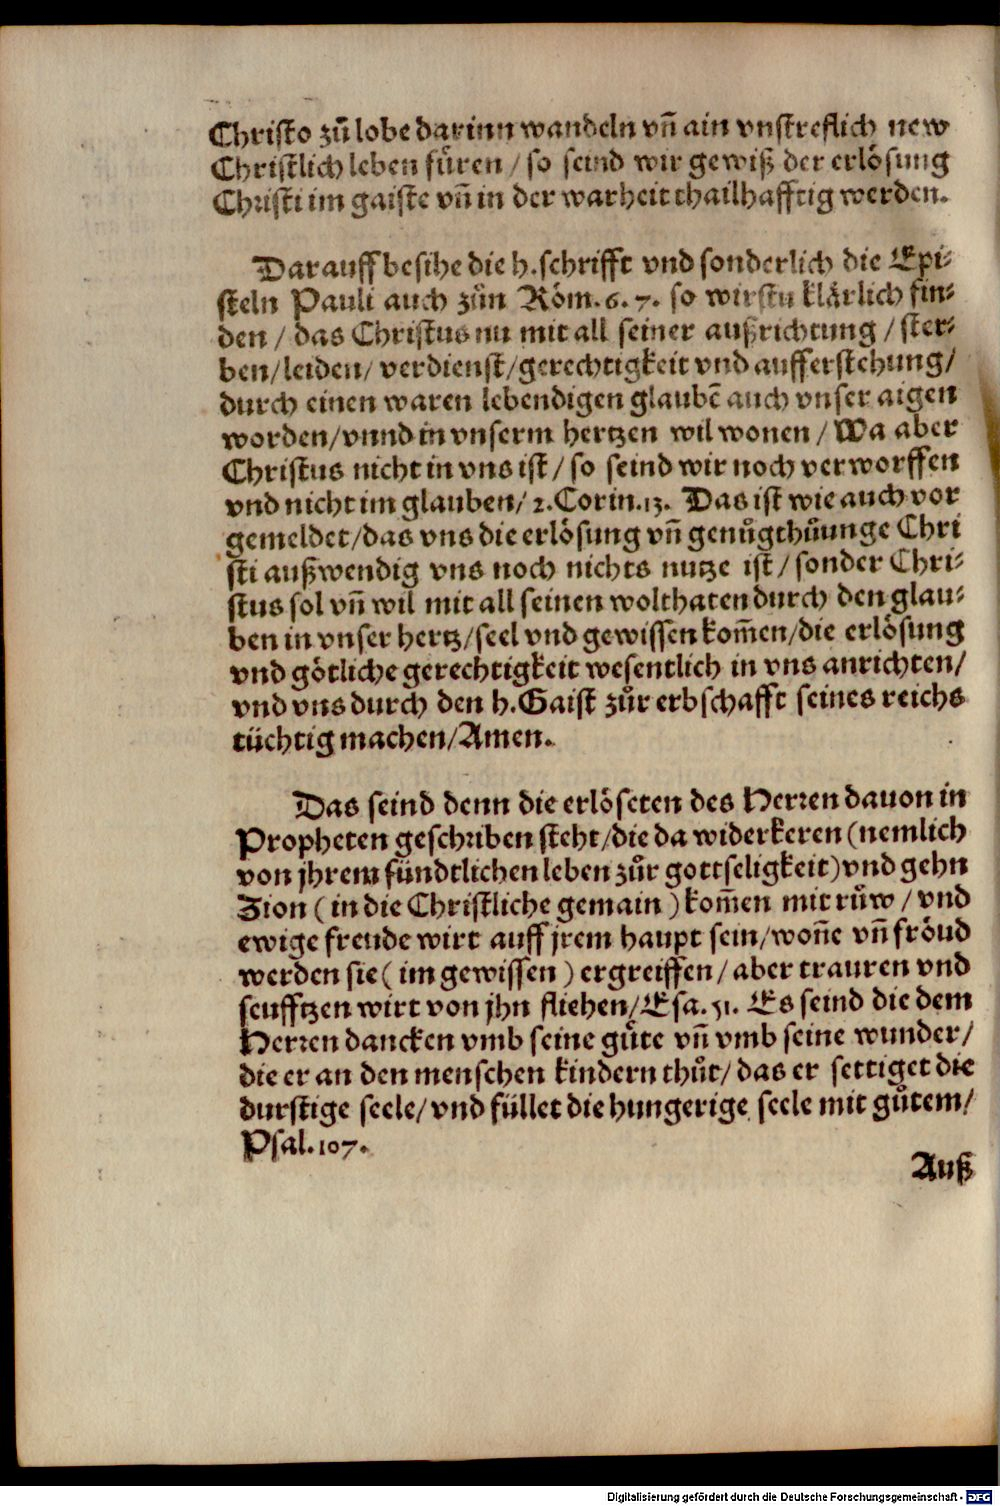 Christo zů lobe darinn wandeln vñ ain vnstreflich new
Christlich leben fůren / so seind wir gewiß der erlösung
Christi im gaiste vñ in der warheit thailhafftig werden.
Darauff besihe die h. schrifft vnd sonderlich die Epi-
steln Pauli auch zůn Röm. 6. 7. so wirstu klärlich fin-
den / das Christus nu mit all seiner außrichtung / ster-
ben / leiden / verdienst / gerechtigkeit vnd aufferstehung /
durch einen waren lebendigen glaubẽ auch vnser aigen
worden / vnnd in vnserm hertzen wil wonen / Wa aber
Christus nicht in vns ist / so seind wir noch verworffen
vnd nicht im glauben / 2. Corin. 13. Das ist wie auch vor
gemeldet / das vns die erlösung vñ genůgthůunge Chri
sti außwendig vns noch nichts nutze ist / sonder Chri-
stus sol vñ wil mit all seinen wolthaten durch den glau-
ben in vnser hertz / seel vnd gewissen kom̃en / die erlösung
vnd götliche gerechtigkeit wesentlich in vns anrichten /
vnd vns durch den h. Gaist zůr erbschafft seines reichs
tüchtig machen / Amen.
Das seind denn die erlöseten des Herren dauon in
Propheten geschriben steht / die da widerkeren (nemlich
von jhrem sündtlichen leben zůr gottseligkeit) vnd gehn
Zion ( in die Christliche gemain ) kom̃en mit růw / vnd
ewige freude wirt auff jrem haupt sein / won̄e vñ fröud
werden sie ( im gewissen ) ergreiffen / aber trauren vnd
seufftzen wirt von jhn fliehen / Esa. 51. Es seind die dem
Herren dancken vmb seine gůte vñ vmb seine wunder /
die er an den menschen kindern thůt / das er settiget die
durstige seele / vnd füllet die hungerige seele mit gůtem /
Psal. 107.
Auß
Digitalisierung gefördert durch die Deutsche Forschungsgemeinschaft - DFG